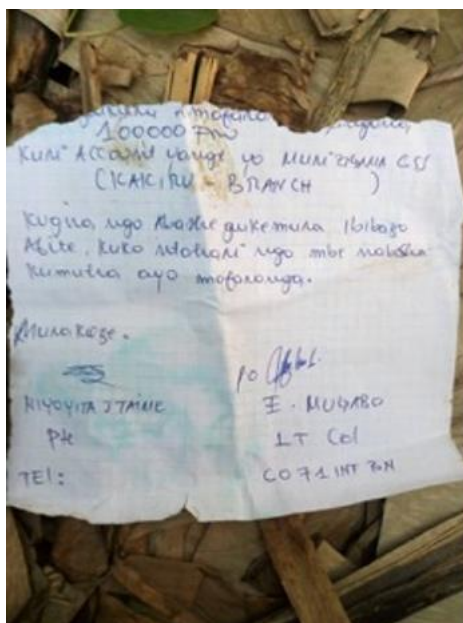 100000 Frw
Kuri Account yange yo muri ZIGAMA CSS
(KAKIRU - BRANCH )
Kugira ngo abashe gukemura Ibibazo
Afite, kuko ntohari ngo mbe nabasha
kumuha ayo mafaranga.
Murakoze.
PO
NIYOYITA J TAIME E. MUGABO
Pte LT Col
TEl: CO 71 INT BN